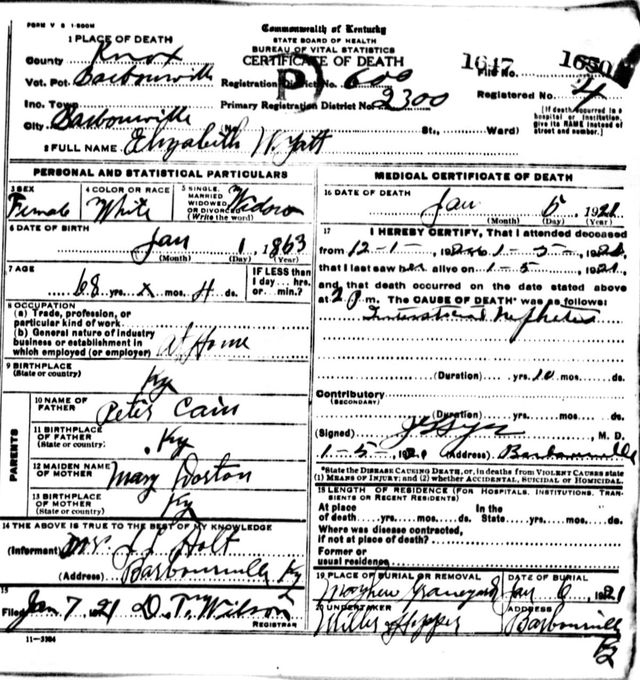 FORM V S 1-500M
Commonwealth of Kentucky
STATE BOARD OF HEALTH
BUREAU OF VITAL STATISTICS
CERTIFICATE OF DEATH
1 PLACE OF DEATH
County Knox
Vot. Pct. Barbourville
Inc. Town
City Barbourville
Registration District No. 600
Primary Registration District No. 2300
1647
File No. 1650
Registered No. 4
No. St., Ward)
[If death occurred in a hospital or institution, give its NAME instead of street and number.]
2 FULL NAME Elizabeth Wyatt
PERSONAL AND STATISTICAL PARTICULARS
3 SEX Female
4 COLOR OR RACE White
5 SINGLE, MARRIED WIDOWED OR DIVORCED Widow
(Write the word)
6 DATE OF BIRTH
Jan 1, 1863
(Month) (Day) (Year)
7 AGE
68 yrs. x mos. 4 ds.
IF LESS than 1 day... hrs. or... min.?
8 OCCUPATION
(a) Trade, profession, or particular kind of work
(b) General nature of industry business or establishment in which employed (or employer) At Home
9 BIRTHPLACE
(State or country) Ky
PARENTS
10 NAME OF FATHER Peter Cain
11 BIRTHPLACE OF FATHER
(State or country) Ky
12 MAIDEN NAME OF MOTHER Mary Dorton
13 BIRTHPLACE OF MOTHER
(State or country) Ky
14 THE ABOVE IS TRUE TO THE BEST OF MY KNOWLEDGE
(Informant) Mr. Holt
(Address) Barbourville Ky
15
Filed Jan 7 1921 Wilson
REGISTRAR
11-3384
MEDICAL CERTIFICATE OF DEATH
16 DATE OF DEATH
Jan 5, 1921
(Month) (Day) (Year)
17 I HEREBY CERTIFY, That I attended deceased
from 12-1-, 192 to 1-5-, 1921,
that I last saw her alive on 1-5, 1921,
and that death occurred on the date stated above
at 2 P m. The CAUSE OF DEATH* was as follows:
Interstitial Nephritis
(Duration) yrs. 10 mos. ds.
Contributory
(SECONDARY)
(Duration) yrs. mos. ds.
(Signed) M. D.
1-5-, 1921 (Address) Barbourville
*State the DISEASE CAUSING DEATH, or, in deaths from VIOLENT CAUSES state (1) MEANS OF INJURY; and (2) whether ACCIDENTAL, SUICIDAL or HOMICIDAL.
18 LENGTH OF RESIDENCE (FOR HOSPITALS, INSTITUTIONS, TRANSIENTS OR RECENT RESIDENTS)
At place of death yrs. mos. ds. In the State yrs. mos. ds.
Where was disease contracted, if not at place of death?
Former or usual residence
19 PLACE OF BURIAL OR REMOVAL Mayhew Graveyard
DATE OF BURIAL Jan 6, 1921
20 UNDERTAKER Miller Hopper
ADDRESS Barbourville